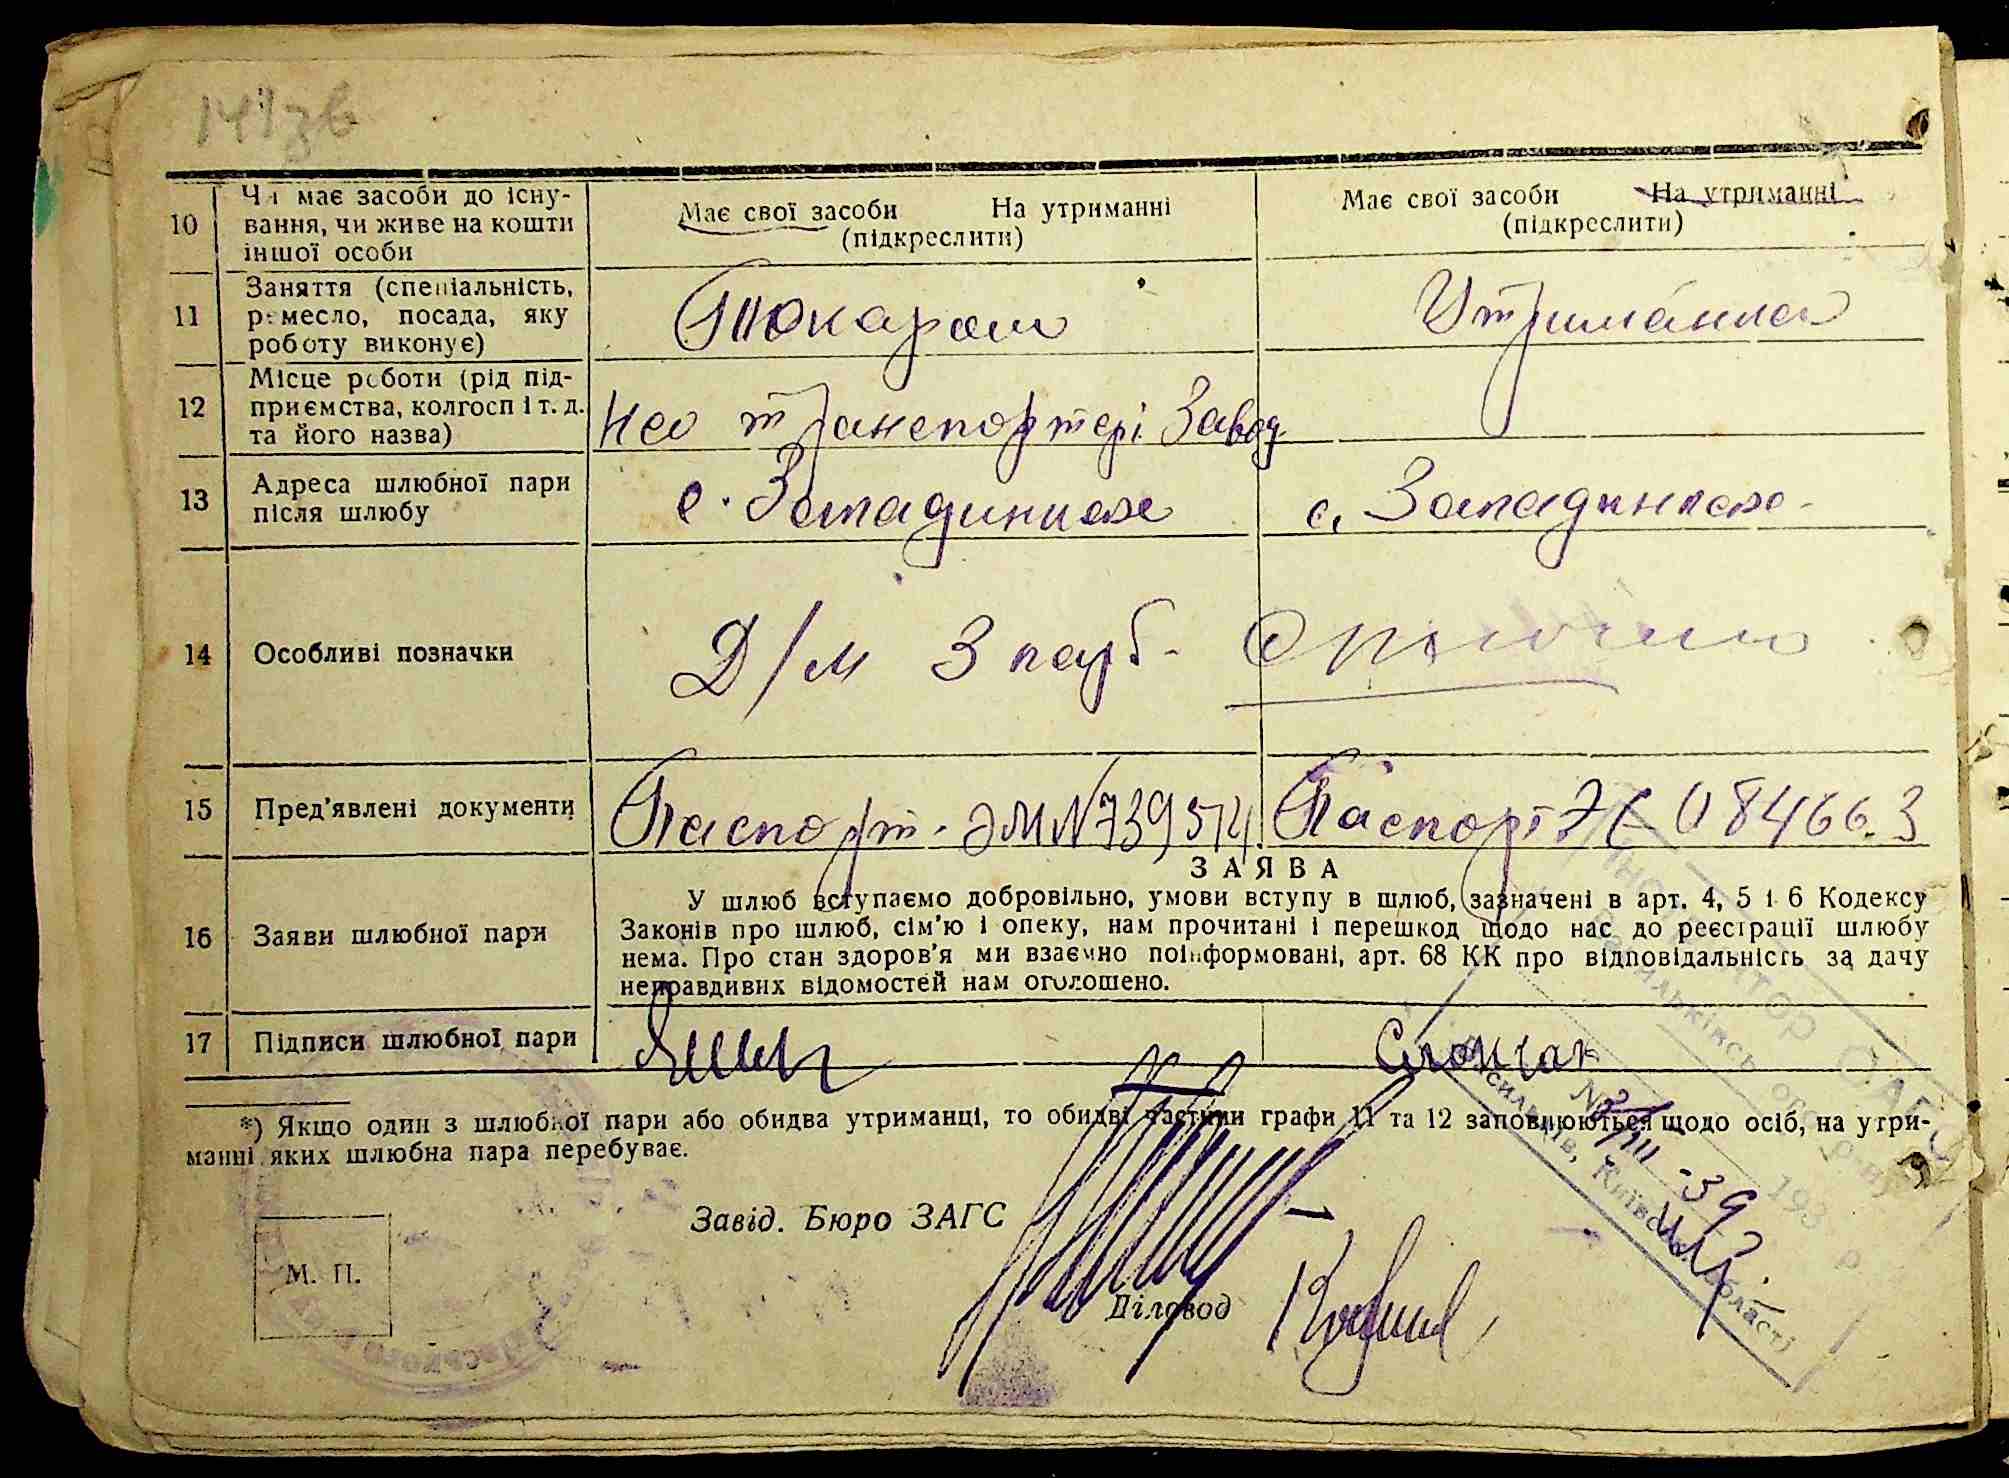 141зв
10 Чи має засоби до існу-
вання, чи живе на кошти
іншої особи
Має свої засоби На утриманні
(підкреслити)
Має свої засоби На утриманні
(підкреслити)
11 Заняття (спеціальність,
ремесло, посада, яку
роботу виконує)
Токаром
Утриманка
12 Місце роботи (рід під-
приємства, колгосп і т. д.
та його назва)
На транспортері Завод
13 Адреса шлюбної пари
після шлюбу
с. Западинках
с. Западинках
14 Особливі позначки
Д/м 3 карб.
15 Пред'явлені документи
Паспорт ЭМ № 739514
Паспорт 084663
16 Заяви шлюбної пари
ЗАЯВА
У шлюб вступаємо добровільно, умови вступу в шлюб, зазначені в арт. 4, 5 і 6 Кодексу
Законів про шлюб, сім'ю і опеку, нам прочитані і перешкод щодо нас до реєстрації шлюбу
нема. Про стан здоров'я ми взаємно поінформовані, арт. 68 КК про відповідальність за дачу
неправдивих відомостей нам оголошено.
17 Підписи шлюбної пари
*) Якщо один з шлюбної пари або обидва утриманці, то обидві частини графи 11 та 12 заповнюються щодо осіб, на утри-
манні яких шлюбна пара перебуває.
Завід. Бюро ЗАГС
М. П.
Діловод